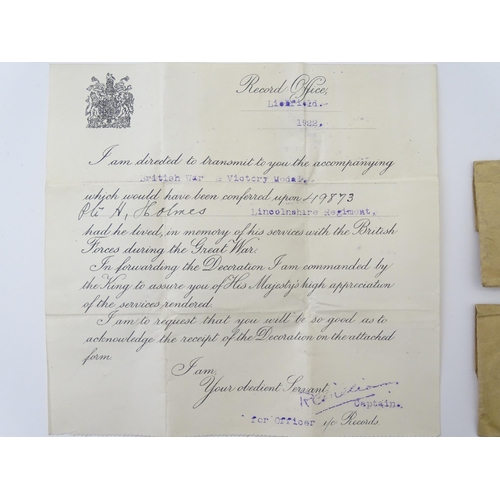 Record Office,
Lichfield.
1922.
I am directed to transmit to you the accompanying
British War & Victory Medal.
which would have been conferred upon 49873
Pte H, Holmes Lincolnshire Regiment,
had he lived, in memory of his services with the British
Forces during the Great War.
In forwarding the Decoration I am commanded by
the King to assure you of His Majesty's high appreciation
of the services rendered.
I am to request that you will be so good as to
acknowledge the receipt of the Decoration on the attached
form.
I am,
Your obedient Servant,
Captain.
for Officer i/c Records.